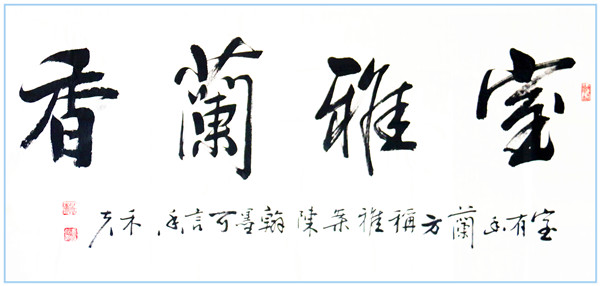 室雅蘭香
室有幽蘭方稱雅案陳翰墨可言香 禾